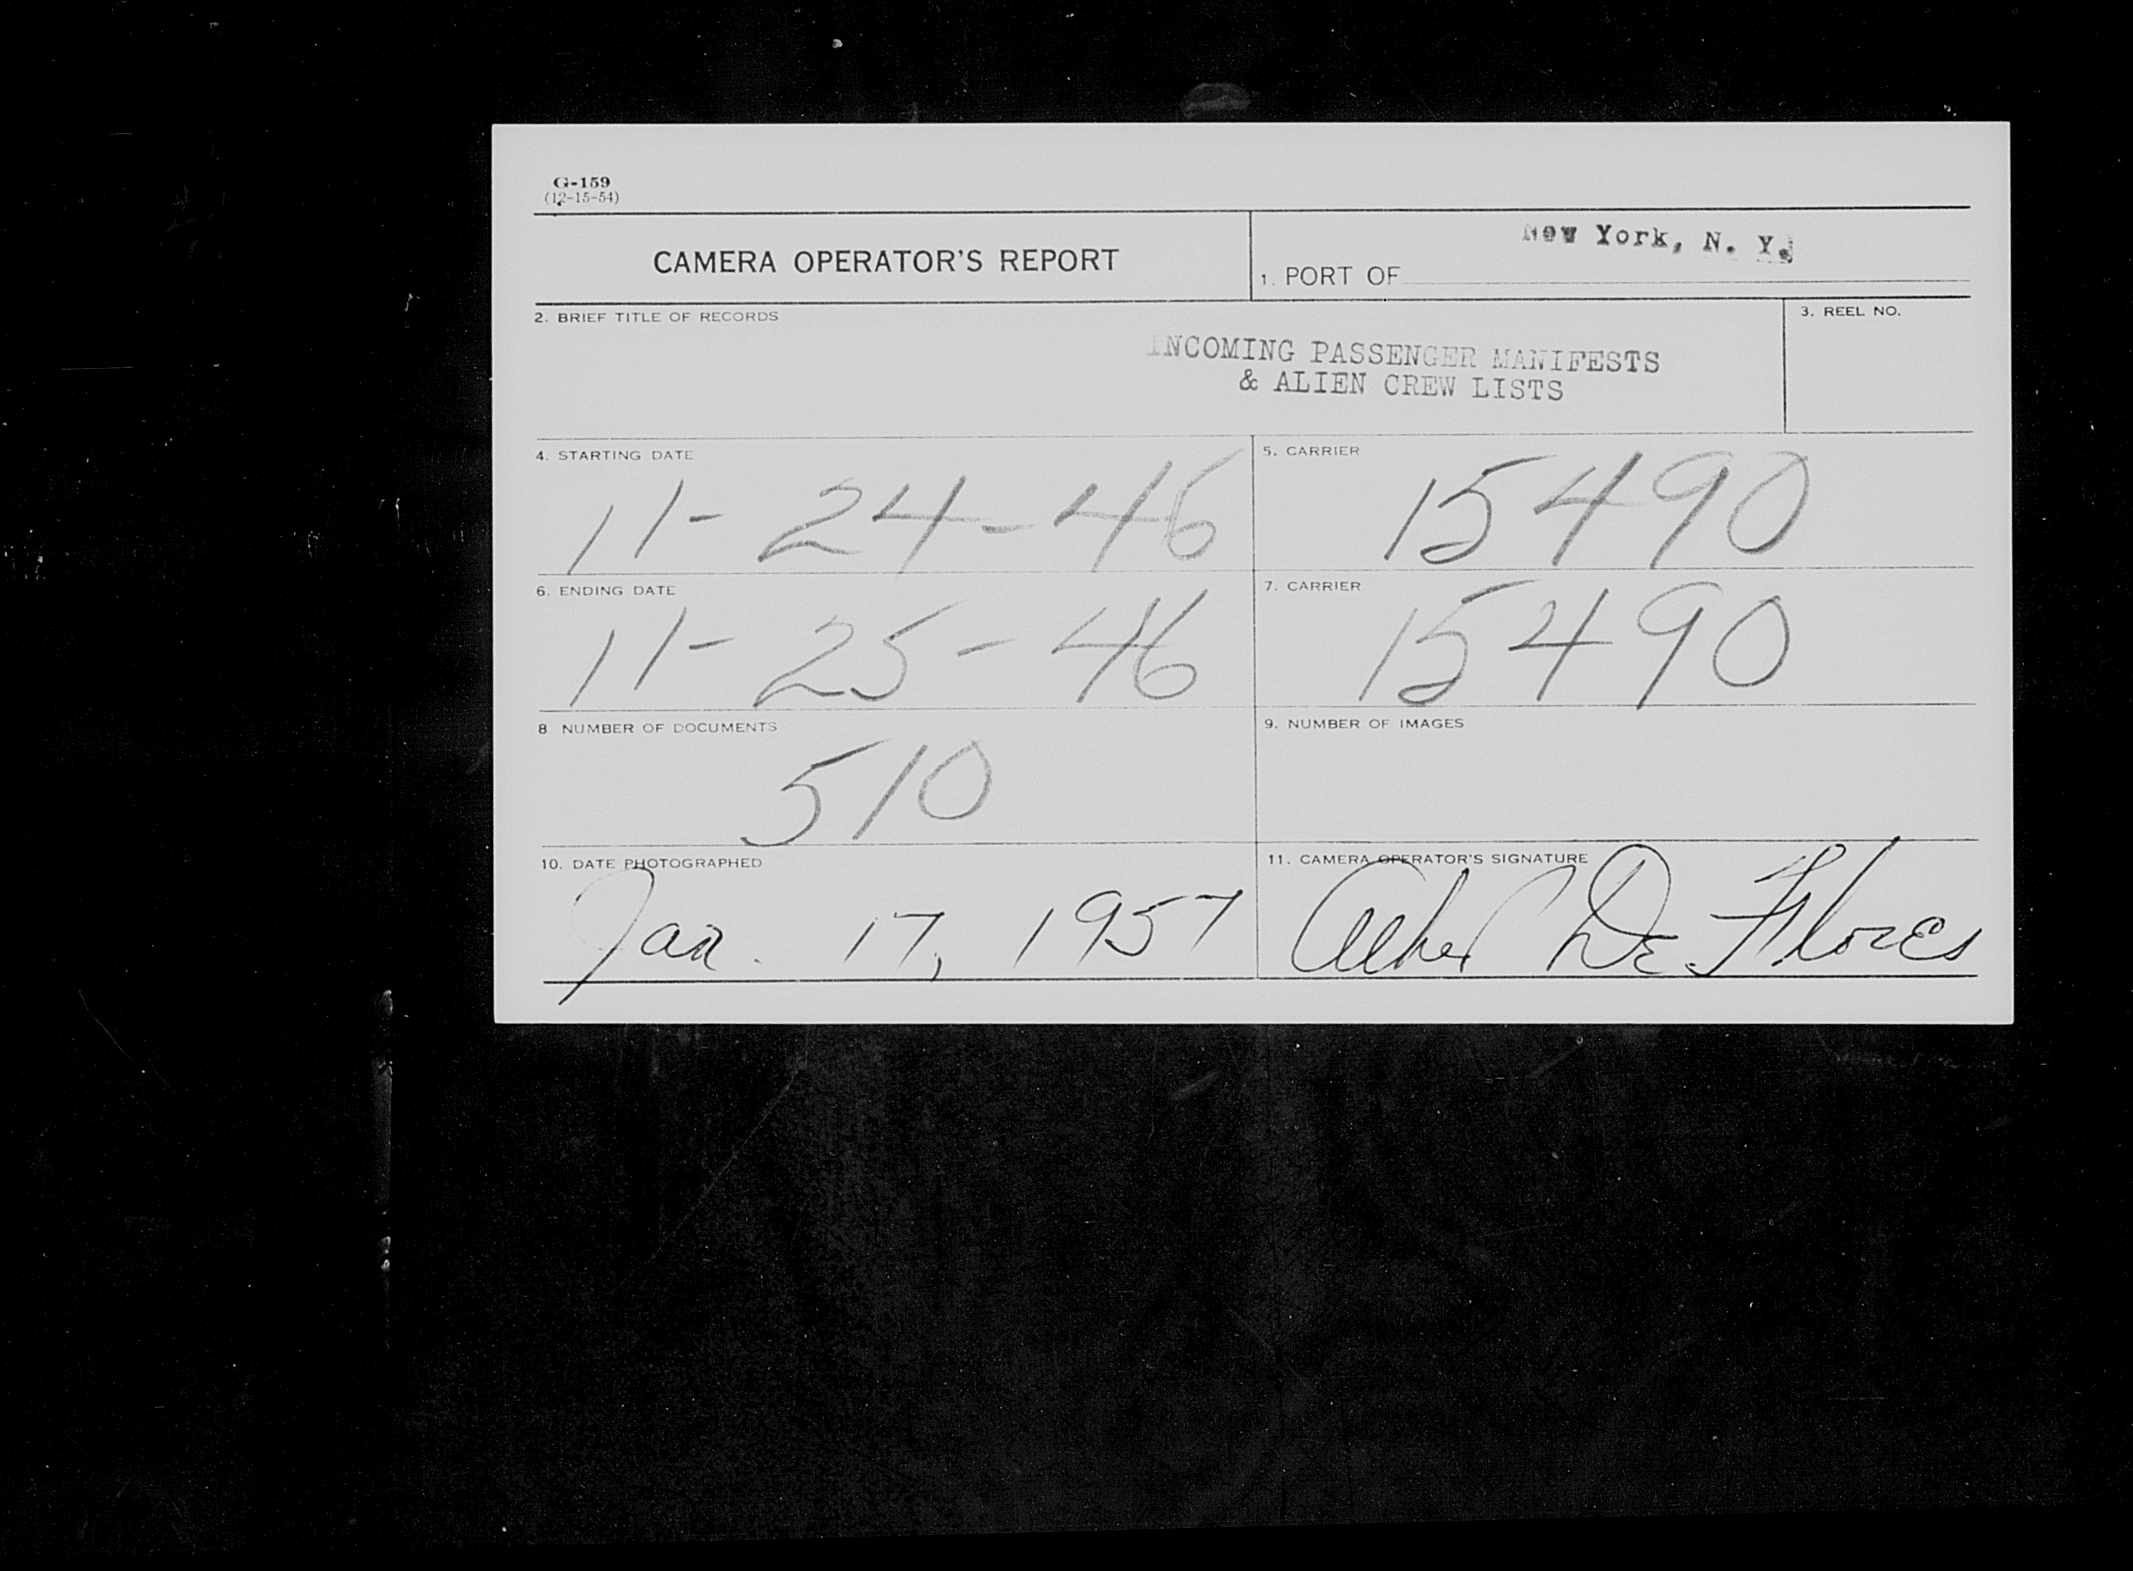 G-159
(12-15-54)
CAMERA OPERATOR'S REPORT
New York, N. Y.
1. PORT OF
2. BRIEF TITLE OF RECORDS
INCOMING PASSENGER MANIFESTS
& ALIEN CREW LISTS
3. REEL NO.
4. STARTING DATE
11-24-46
5. CARRIER
15490
6. ENDING DATE
11-25-46
7. CARRIER
15490
8 NUMBER OF DOCUMENTS
510
9. NUMBER OF IMAGES
10. DATE PHOTOGRAPHED
Jan. 17, 1957
11. CAMERA OPERATOR'S SIGNATURE
De Flores